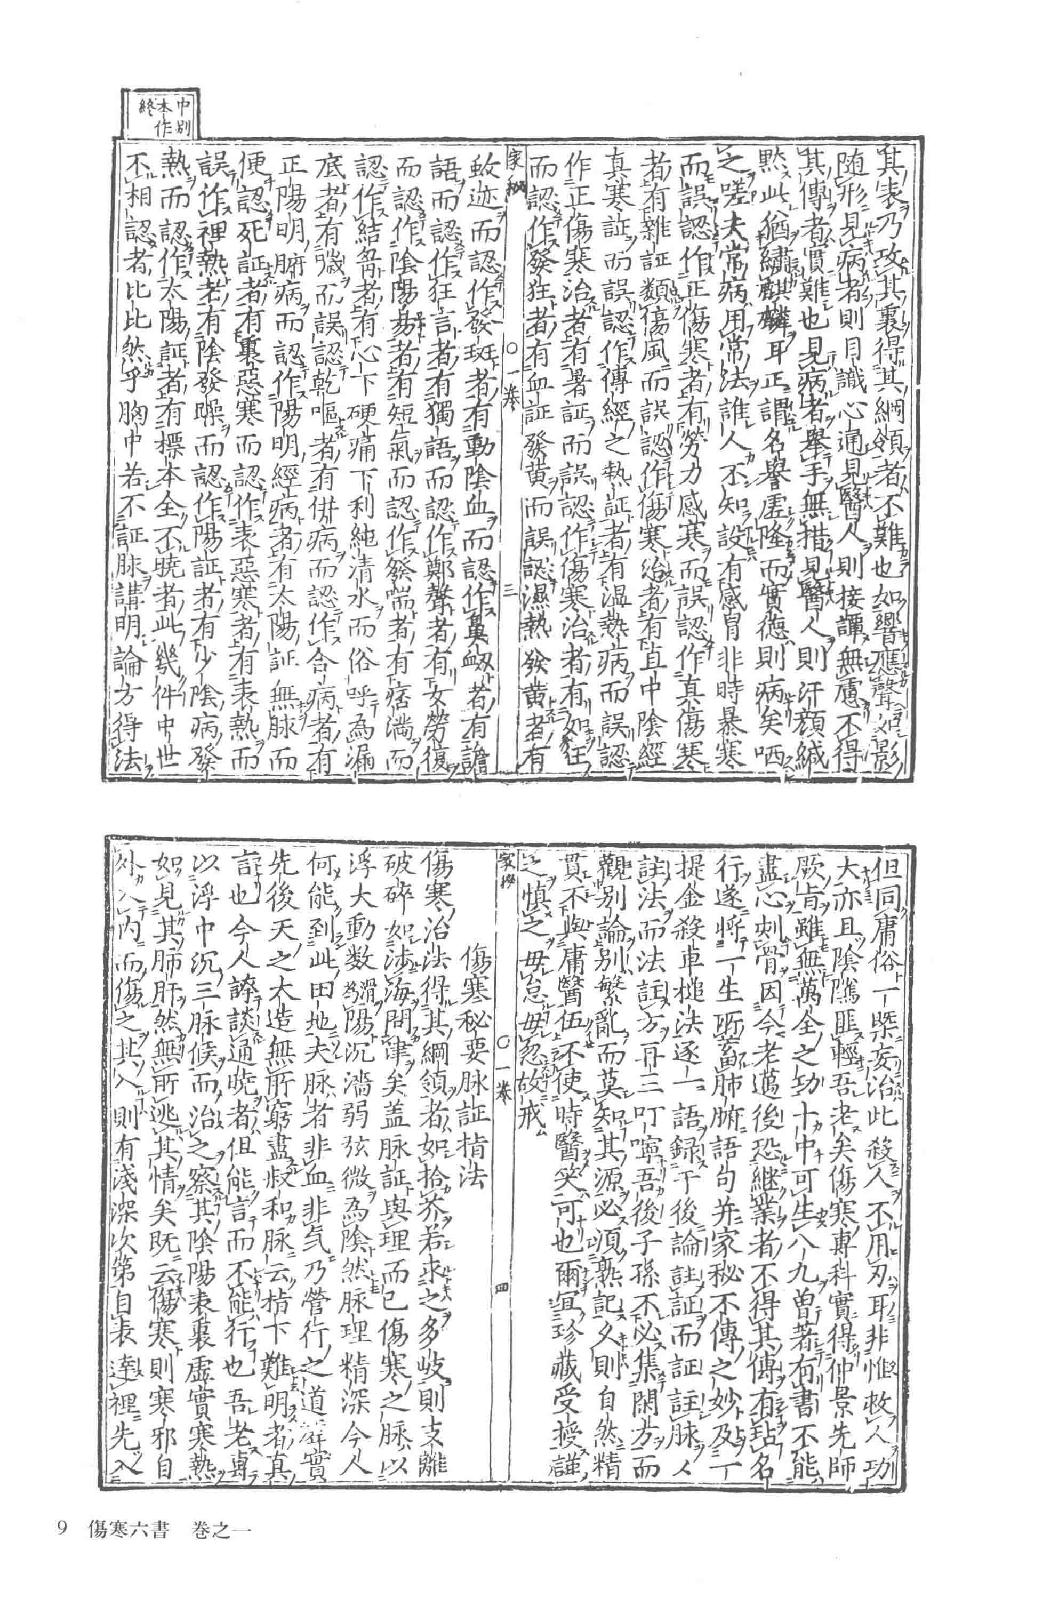 中別
本作
終
其表乃攻其裏得其綱領者不難也如響應聲如影
随形見病者則目識心通見醫人則接譚無慮不得
其傳者實難也見病者舉手無措見醫人則汗顔緘
黙此猶繡麒麟耳正謂名譽虛隆而實德則病矣哂
之嗟夫常病用常法誰人不知設有感冐非時暴寒
而誤認作正傷寒者有勞力感寒而誤認作真傷寒
者有雜証類傷風而誤認作傷寒治者有直中陰經
真寒証而誤認作傳經之熱証者有温熱病而誤認
作正傷寒治者有暑証而誤認作傷寒治者有如狂
而認作發狂者有血証發黄而誤認濕熱發黄者有
家秘 ○一卷 三
蚊迹而認作發斑者有動陰血而認作鼻衂者有譫
語而認作狂言者有獨語而認作鄭聲者有女勞復
而認作陰陽易者有短氣而認作發喘者有痞滿而
認作結胷者有心下硬痛下利純清水而俗呼為漏
底者有噦而誤認乾嘔者有併病而認作合病者有
正陽明腑病而認作陽明經病者有太陽証無脉而
便認死証者有裏惡寒而認作表惡寒者有表熱而
誤作裡熱者有陰發躁而認作陽証者有少陰病發
熱而認作太陽証者有標本全不曉者此幾件中世
不相認者比比然乎胸中若不証脉講明論方得法
但同庸俗一槩妄治此殺人不用刃耳非惟救人功
大亦且陰隲匪輕吾老矣傷寒專科實得仲景先師
厥㫖雖無萬全之功十中可生八九曽著有書不能
盡心刺骨因今老邁後恐継業者不得其傳有玷名
行遂將一生所蓄肺腑語句并家秘不傳之妙及一
提金殺車槌法逐一語録于後論註証而証註脉人
註法而法註方再三叮嚀吾後子孫不必集閑方而
觀別論別繁亂而莫知其源必須熟記久則自然精
貫不與庸醫伍不使時醫笑可也爾宜珍藏受授謹
之慎之毋怠毋忽故戒
家秘 ○一卷 四
傷寒秘要脉証指法
傷寒治法得其綱領者如拾芥若求之多岐則支離
破碎如涉海問津矣盖脉証與理而已傷寒之脉以
浮大動数滑為陽沉濇弱弦微為陰然脉理精深今人
何能到此田地夫脉者非血非気乃營行之道路實
先後天之大造無所窮盡叔和脉云指下難明者真
誑也今人誇談通暁者但能言而不能行也吾老専
以浮中沉三脉候而治之察其陰陽表裏虛實寒熱
如見其肺肝然無所逃其情矣既云傷寒則寒邪自
外入内而傷之其入則有淺深次第自表達裡先入
9 傷寒六書 巻之一